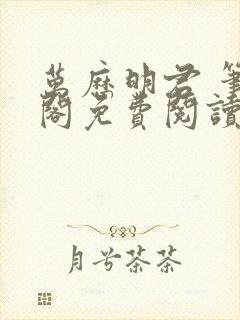 萬歷明君 筆
閣免費閱讀
月兮茶茶